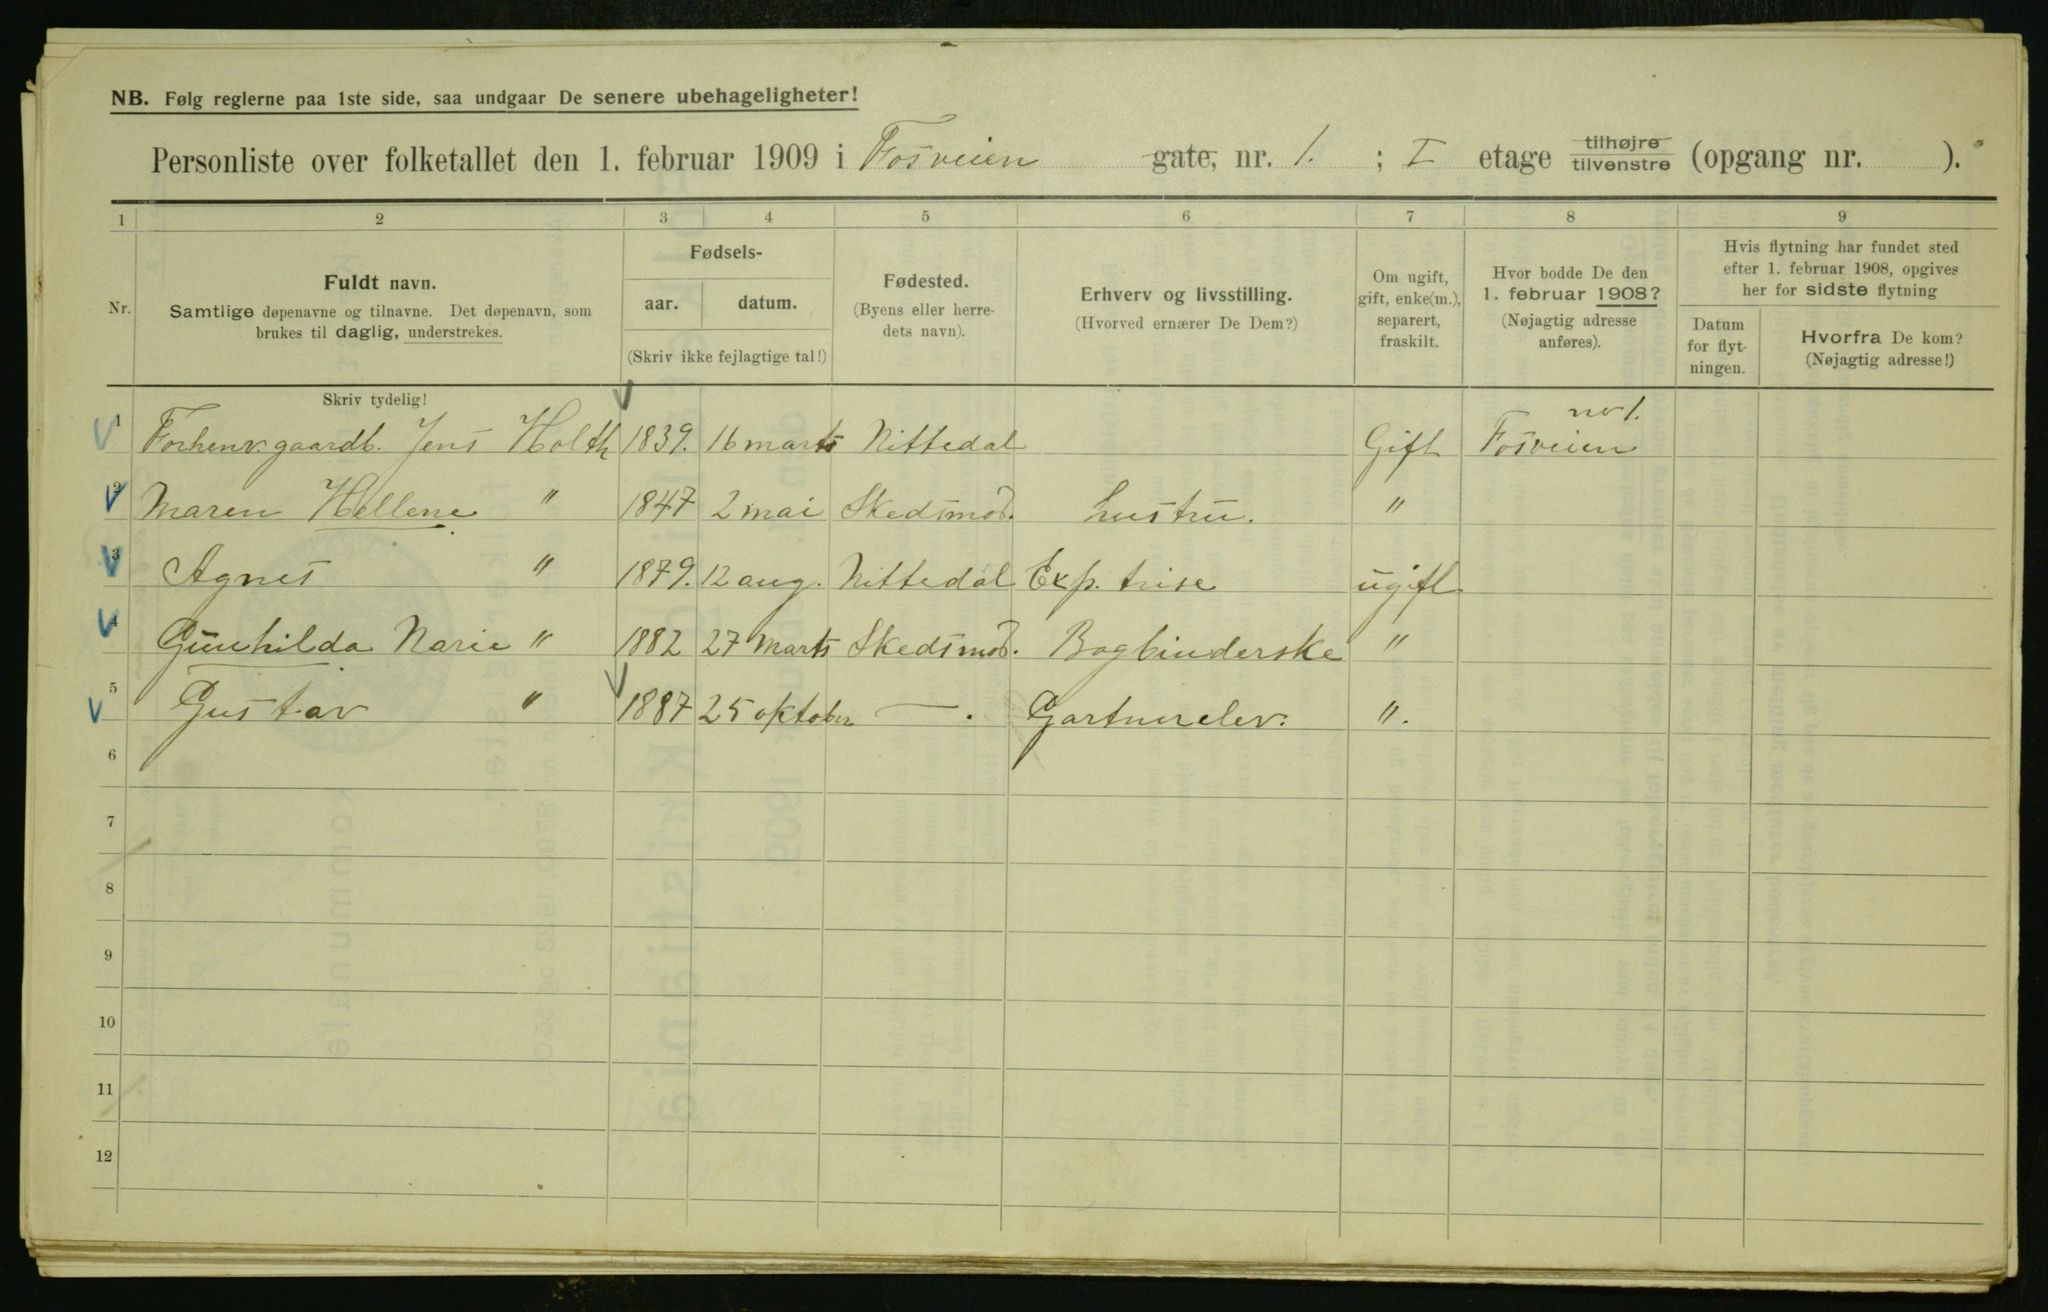 NB. Følg reglerne paa 1ste side, saa undgaar De senere ubehageligheter!
Personliste over folketallet den 1. februar 1909 i Fosveien gate, nr. 1. ; I etage tilhøjre tilvenstre (opgang nr. ).
1 2 3 4 5 6 7 8 9
Nr.
Fuldt navn.
Samtlige døpenavne og tilnavne. Det døpenavn, som
brukes til daglig, understrekes.
Fødsels-
aar. datum.
(Skriv ikke fejlagtige tal!)
Fødested.
(Byens eller herre-
dets navn).
Erhverv og livsstilling.
(Hvorved ernærer De Dem?)
Om ugift,
gift, enke(m.),
separert,
fraskilt.
Hvor bodde De den
1. februar 1908?
(Nøjagtig adresse
anføres).
Hvis flytning har fundet sted
efter 1. februar 1908, opgives
her for sidste flytning
Datum
for flyt-
ningen.
Hvorfra De kom?
(Nøjagtig adresse!)
Skriv tydelig!
nr 1.
1 Forhenv. gaardb. Jens Holth 1839. 16 marts Nittedal Gift Fosveien
2 Maren Hellene " 1847 2 mai Skedsmo. hustru. "
3 Agnes " 1879. 12 aug. Nittedal Exp. trise ugift
4 Gunhilda Marie " 1882 27 Marts Skedsmo. Bogbinderske "
5 Gustav " 1887 25 oktober — . Gartnerelev. ".
6
7
8
9
10
11
12